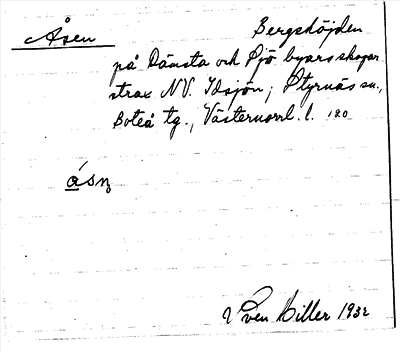 Åsen Bergshöjden
på Dämsta och Sjö byars skogar
strax NV. Idsjön; Styrnäs sn.,
Boteå tg., Västernorrl. l. 120
åsn̥
Sven Hiller 1932